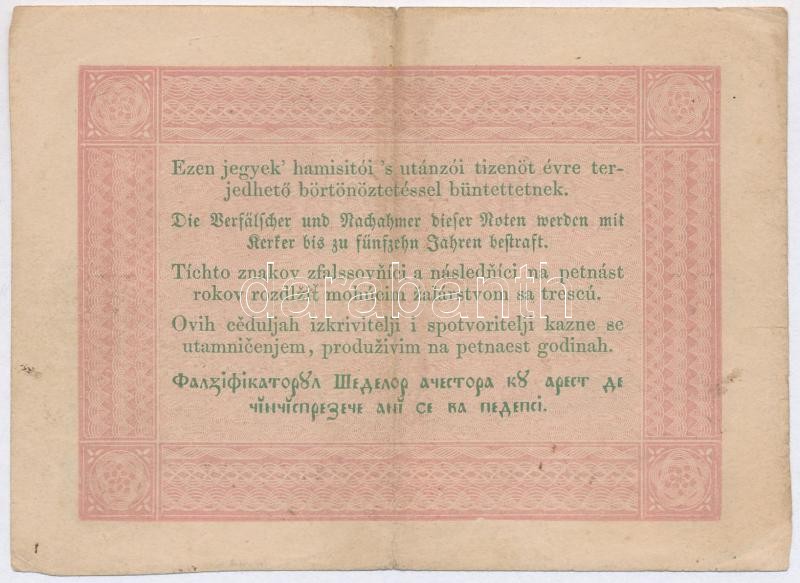 Ezen jegyek' hamisitói 's utánzói tizenöt évre ter-
jedhető börtönöztetéssel büntettetnek.
Die Verfälscher und Nachahmer dieser Noten werden mit
Kerker bis zu fünfzehn Jahren bestraft.
Tíchto znakov zfalssovňíci a následňíci na petnást
rokov rozdlžiť mohúcim žalárstvom sa trescú.
darabanth
Ovih cěduljah izkrivitelji i spotvoritelji kazne se
utamničenjem, produživim na petnaest godinah.
Фалꙁіфікаторꙋл Шеделор ачестора кꙋ арест де
чїнчїспрезече анї се ва педепсі.